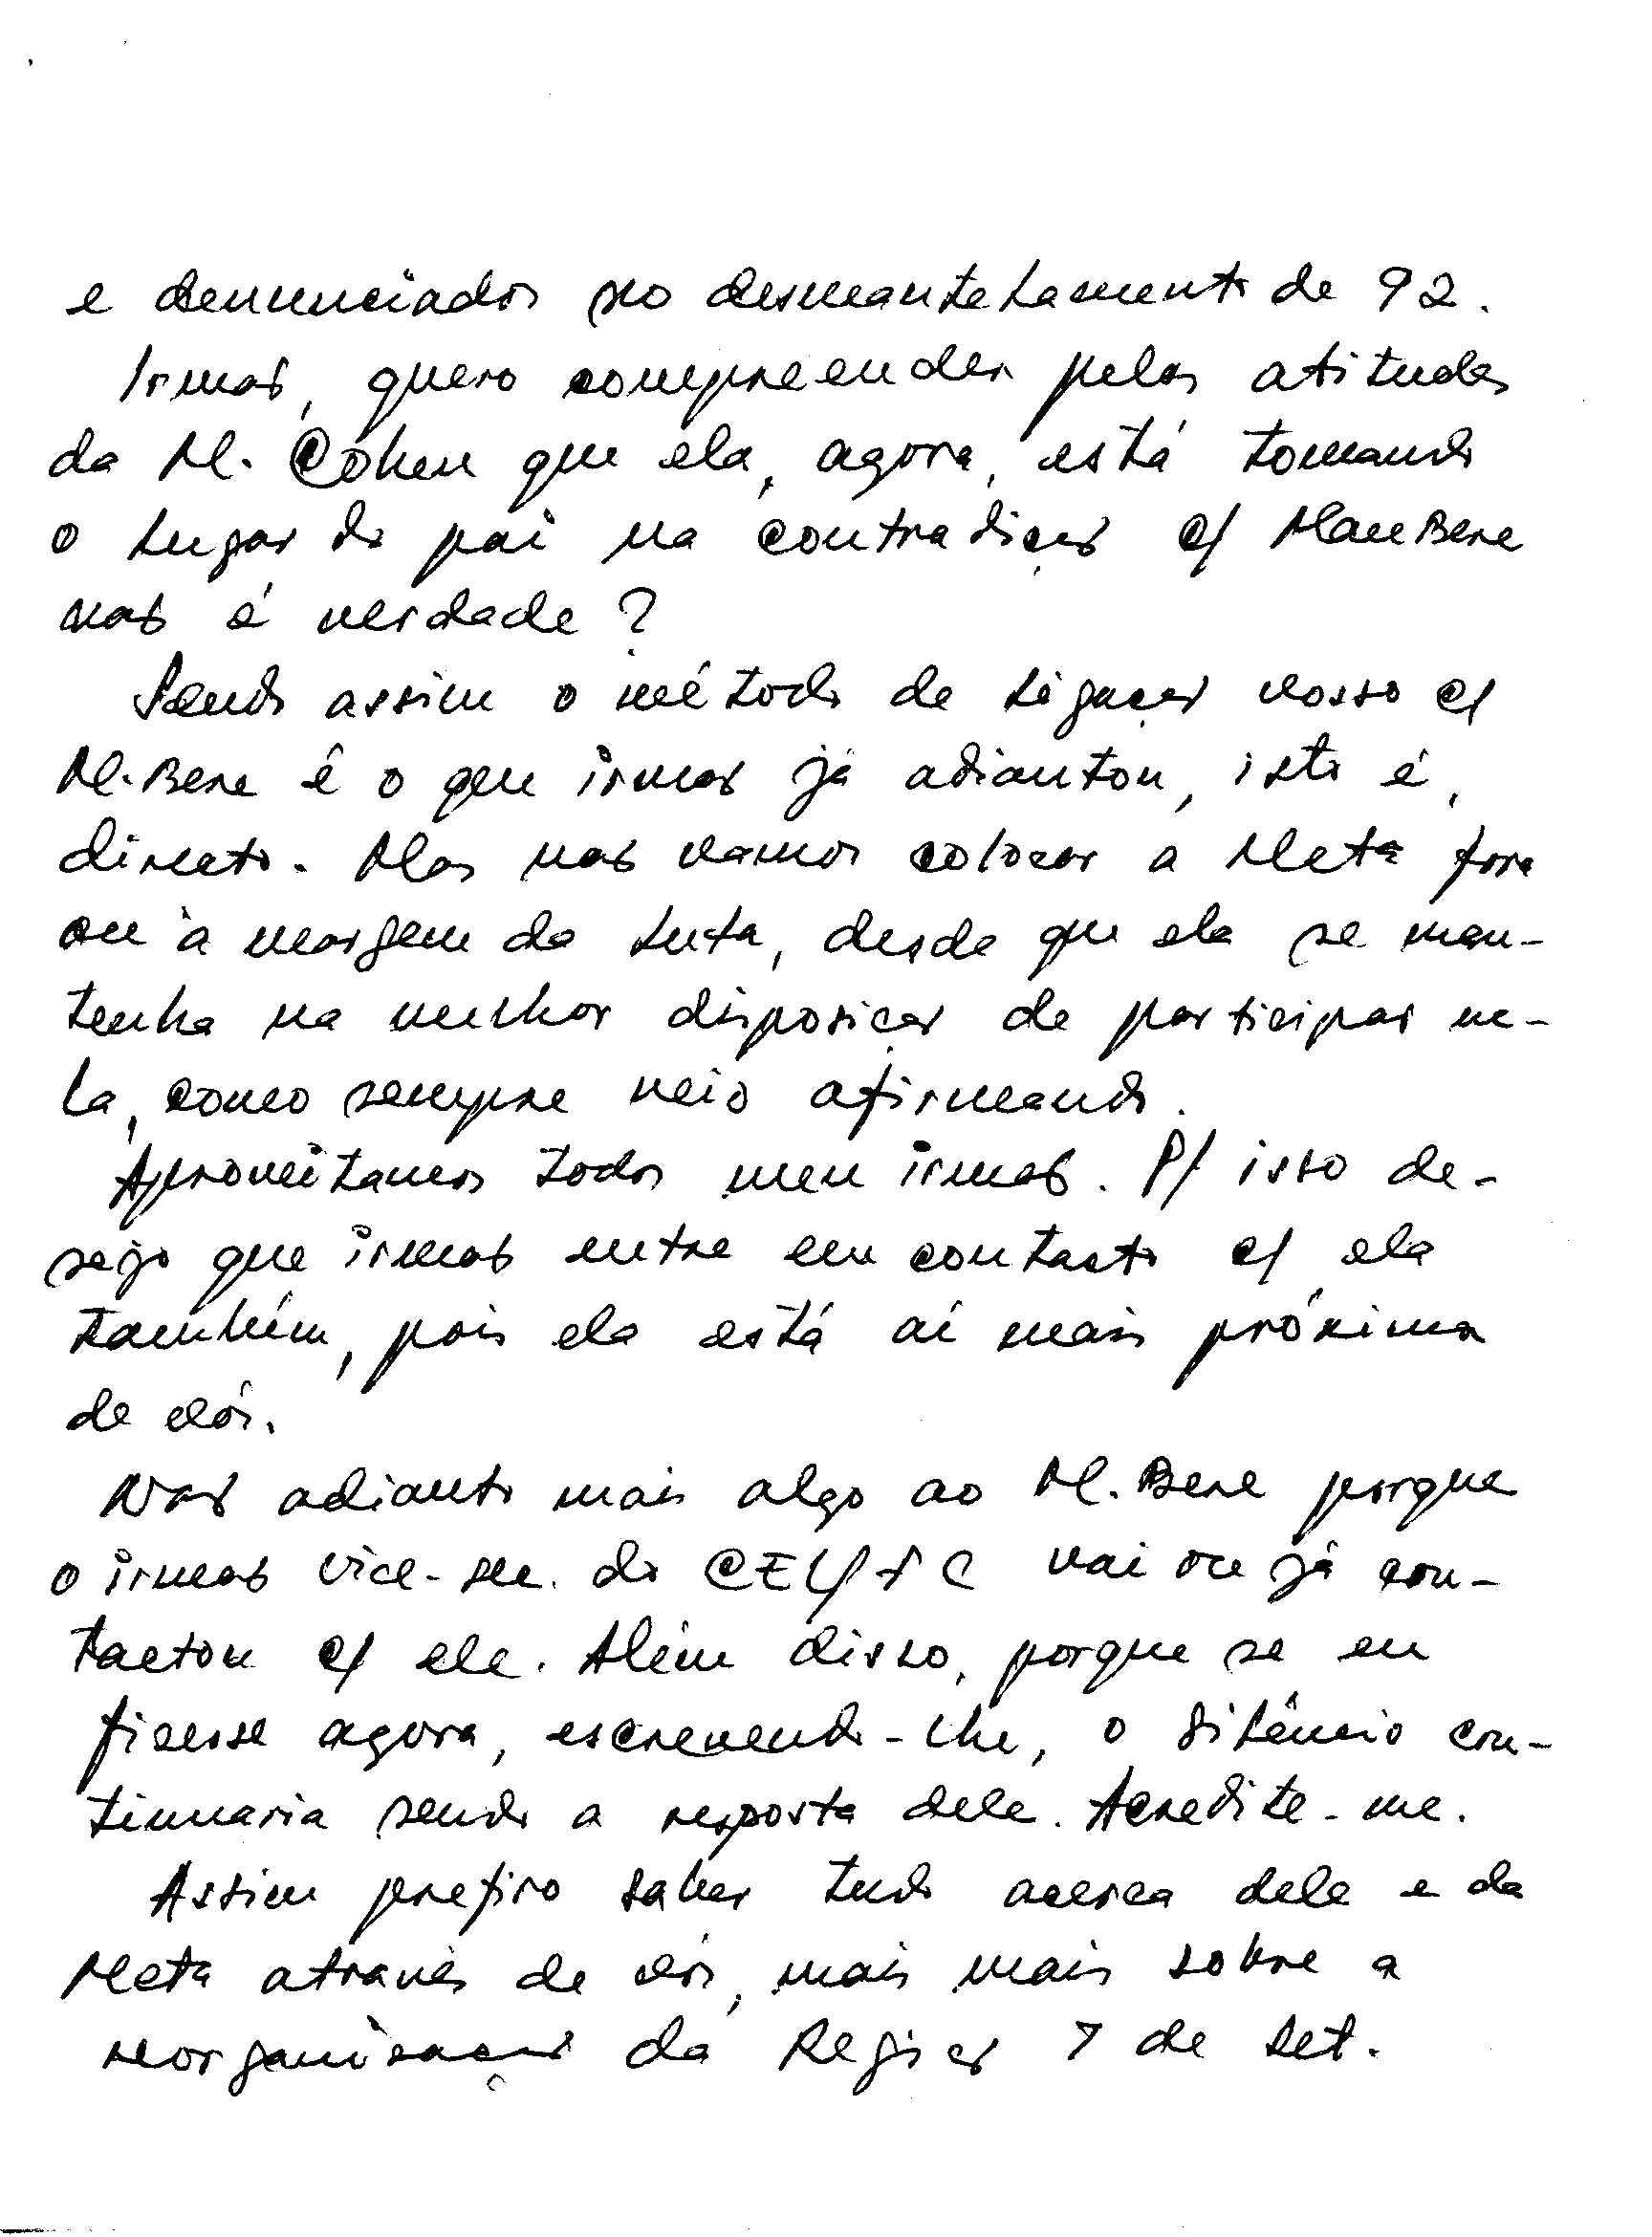 e denunciados no desmantelamento de 92.
Irmão, quero compreender pelas atitudes
da M. Cohen que ela, agora, está tomando
o lugar do pai na contradição c/ MauBere
não é verdade?
Sendo assim o método de ligação vosso c/
M.Bere é o que irmão já adiantou, isto é,
directo. Mas não vamos colocar a Meta fora
ou à margem da luta, desde que ela se man-
tenha na melhor disposição de participar ne-
la, como sempre veio afirmando.
Aproveitamos todos meu irmão. P/ isso de-
sejo que irmão entre em contacto c/ ela
também, pois ela está aí mais próxima
de vós.
Não adianto mais algo ao M.Bere porque
o irmão vice-sec. do CEL/FC vai ou já con-
tactou c/ ele. Além disso, porque se eu
fizesse agora, escrevendo-lhe, o silêncio con-
tinuaria sendo a resposta dele. Acredite-me.
Assim prefiro saber tudo acerca dele e da
Meta através de vós, mais mais sobre a
reorganisação da Região 7 de Set.